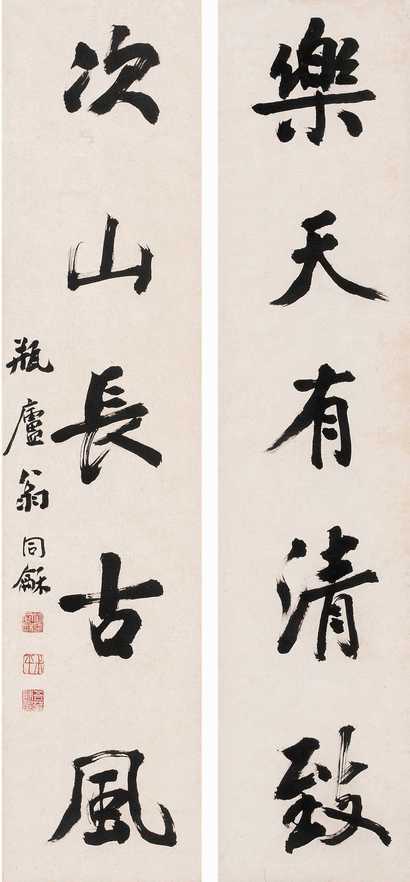 樂天有清致
次山長古風
瓶廬翁同龢